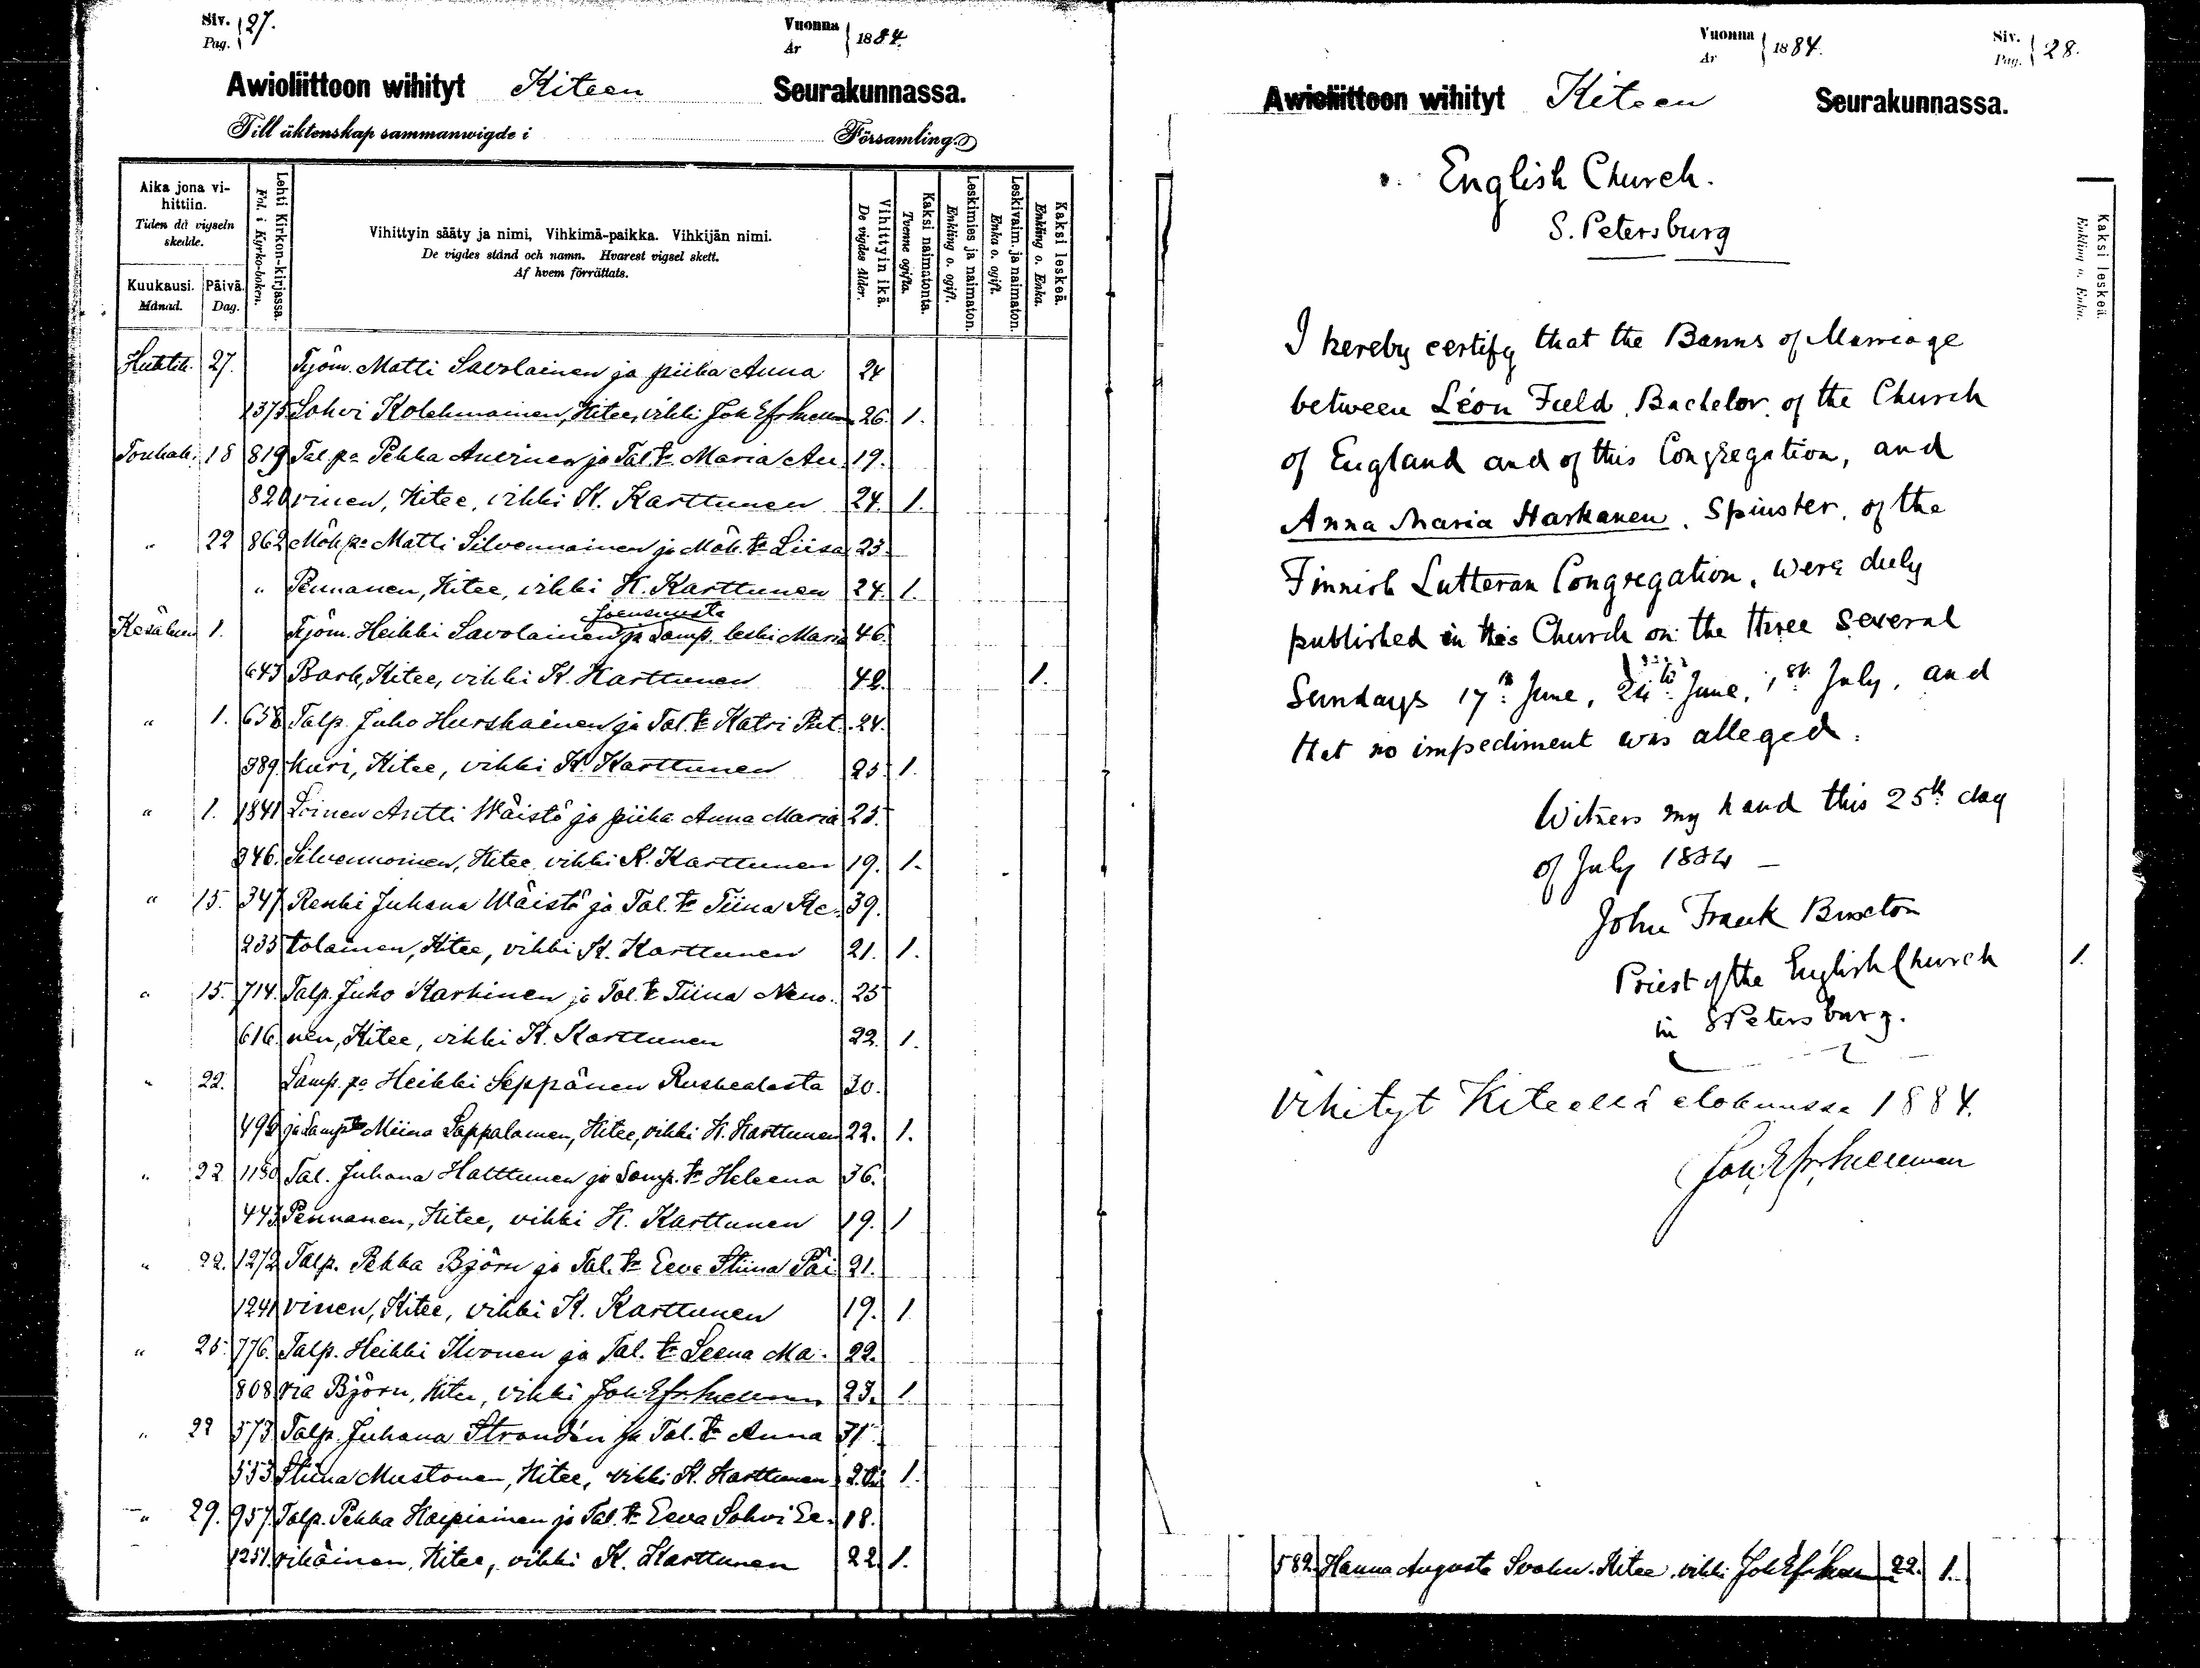 Siv. Pag. 27.
Vuonna År 1884.
Awioliittoon wihityt Kiteen Seurakunnassa.
Till äktenskap sammanwigde i Församling.
Aika jona vihittiin.
Tiden då vigseln skedde.
Kuukausi. Månad.
Päivä. Dag.
Lehti Kirkon-kirjassa.
Fol. i Kyrko-boken.
Vihittyin sääty ja nimi, Vihkimä-paikka. Vihkijän nimi.
De vigdes stånd och namn. Hvarest vigsel skett.
Af hvem förrättats.
Vihittyin ikä.
De vigdes ålder.
Kaksi naimatonta.
Tvenne ogifta.
Leskimies ja naimaton.
Enkling o. ogift.
Leskivaim. ja naimaton.
Enka o. ogift.
Kaksi leskeä.
Enkling o. Enka.
Huhtik. 27. Työm. Matti Savolainen ja piika Anna 24
1375 Sohvi Kolehmainen, Kitee, vihki Joh Efr 26. 1.
Toukok. 18 819 Tal. pa Pekka Auvinen ja Tal. tr Maria Au- 19.
820 vinen, Kitee, vihki K. Karttunen 24. 1.
" 22 862 Mök. pa Matti Silvennoinen ja Mök. tr Liisa 23.
" Pennanen, Kitee, vihki K. Karttunen 24. 1.
Joensuusta
Kesäkuu 1. Työm. Heikki Savolainen ja Lamp. leski Maria 46.
643 Bark, Kitee, vihki K. Karttunen 42. 1.
" 1. 658 Talp. Juho Hurskainen ja Tal. tr Katri Put- 24.
389. kuri, Kitee, vihki K. Karttunen 25. 1.
" 1. 1841 Loinen Antti Wäistö ja piika Anna Maria 25.
346. Silvennoinen, Kitee vihki K. Karttunen 19. 1.
" 15. 347 Renki Juhana Wäistö ja Tal. tr Tiina Ke- 39.
235 tolainen, Kitee, vihki K. Karttunen 21. 1.
" 15. 714. Talp. Juho Karhinen ja Tal. tr Tiina Neno- 25
616. nen, Kitee, vihki K. Karttunen 22. 1.
" 22. Lamp. pa Heikki Seppänen Ruskealasta 30.
499 ja Lamp. tr Miina Lappalainen, Kitee, vihki K. Karttunen 22. 1.
" 22 1130 Tal. Juhana Halttunen ja Lamp. tr Heleena 36.
443 Pennanen, Kitee, vihki K. Karttunen 19. 1
" 22. 1272 Talp. Pekka Björn ja Tal. tr Eeva Stiina Päi- 21.
1241 vinen, Kitee, vihki K. Karttunen 19. 1
" 25. 776. Talp. Heikki Ilvonen ja Tal. tr Leena Ma- 22.
808 ria Björn, Kitee, vihki Joh Efr 23. 1
" 22 573 Talp. Juhana Strandén ja Tal. tr Anna 31.
553 Stiina Mustonen, Kitee, vihki K. Karttunen 1.
" 29. 957. Talp. Pekka Karpiainen ja Tal. tr Eeva Sohvi Ee- 18.
1251. rikäinen, Kitee, vihki K. Karttunen 22. 1.
Vuonna År 1884.
Siv. Pag. 28.
Awioliittoon wihityt Kiteen Seurakunnassa.
Kaksi leskeä.
Enkling o. Enka.
English Church.
S. Petersburg
I hereby certify that the Banns of Marriage
between Léon Field, Bachelor, of the Church
of England and of this Congregation, and
Anna Maria Harkanen, Spinster, of the
Finnish Lutteran Congregation, were duly
published in this Church on the three several
Sundays 17th June, 24th June, 1st July, and
that no impediment was alleged.
Witness my hand this 25th day
of July 1884 —
John Frank Buxton
Priest of the English Church 1.
in S Petersburg.
Vihityt Kiteellä elokuussa 1884.
Joh. Efr.
582. Hanna Augusta Svahn. Kitee. vihki Joh Efr 22. 1.